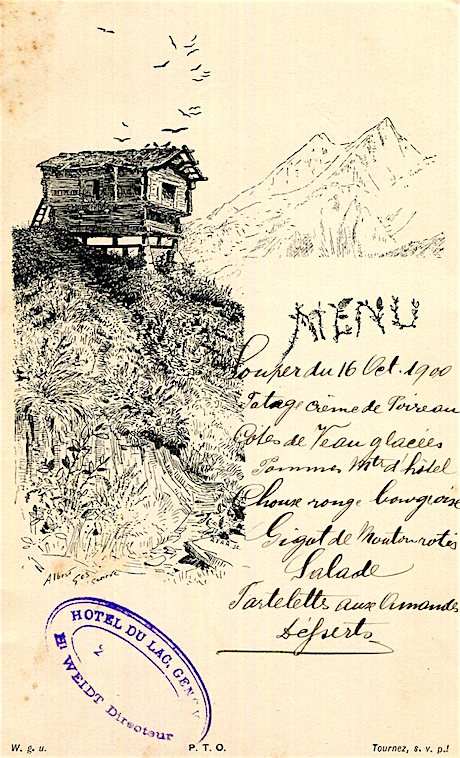 MENU
Souper du 16 Oct. 1900
Potage crème de Poireau
Côtes de Veau glacées
Pommes Mtre d'hôtel
Choux rouge bourgeoise
Gigot de Mouton rotis
Salade
Tartelettes aux Amandes
Désserts
Albert Gos
HOTEL DU LAC, GENÈV
2
WEIDT Directeur
W. g. u.
P. T. O.
Tournez, s. v. p.!